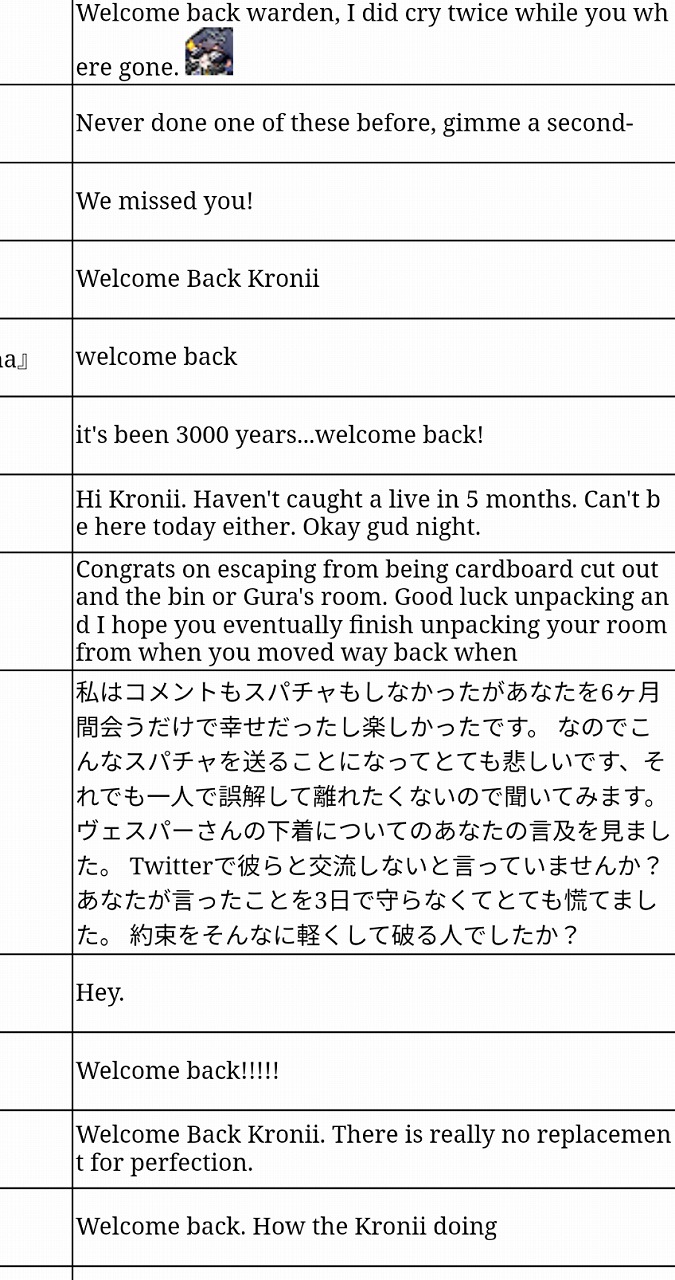 Welcome back warden, I did cry twice while you wh
ere gone.
Never done one of these before, gimme a second-
We missed you!
Welcome Back Kronii
na』
welcome back
it's been 3000 years...welcome back!
Hi Kronii. Haven't caught a live in 5 months. Can't b
e here today either. Okay gud night.
Congrats on escaping from being cardboard cut out
and the bin or Gura's room. Good luck unpacking an
d I hope you eventually finish unpacking your room
from when you moved way back when
私はコメントもスパチャもしなかったがあなたを6ヶ月
間会うだけで幸せだったし楽しかったです。 なのでこ
んなスパチャを送ることになってとても悲しいです、そ
れでも一人で誤解して離れたくないので聞いてみます。
ヴェスパーさんの下着についてのあなたの言及を見まし
た。 Twitterで彼らと交流しないと言っていませんか？
あなたが言ったことを3日で守らなくてとても慌てまし
た。 約束をそんなに軽くして破る人でしたか？
Hey.
Welcome back!!!!!
Welcome Back Kronii. There is really no replacemen
t for perfection.
Welcome back. How the Kronii doing